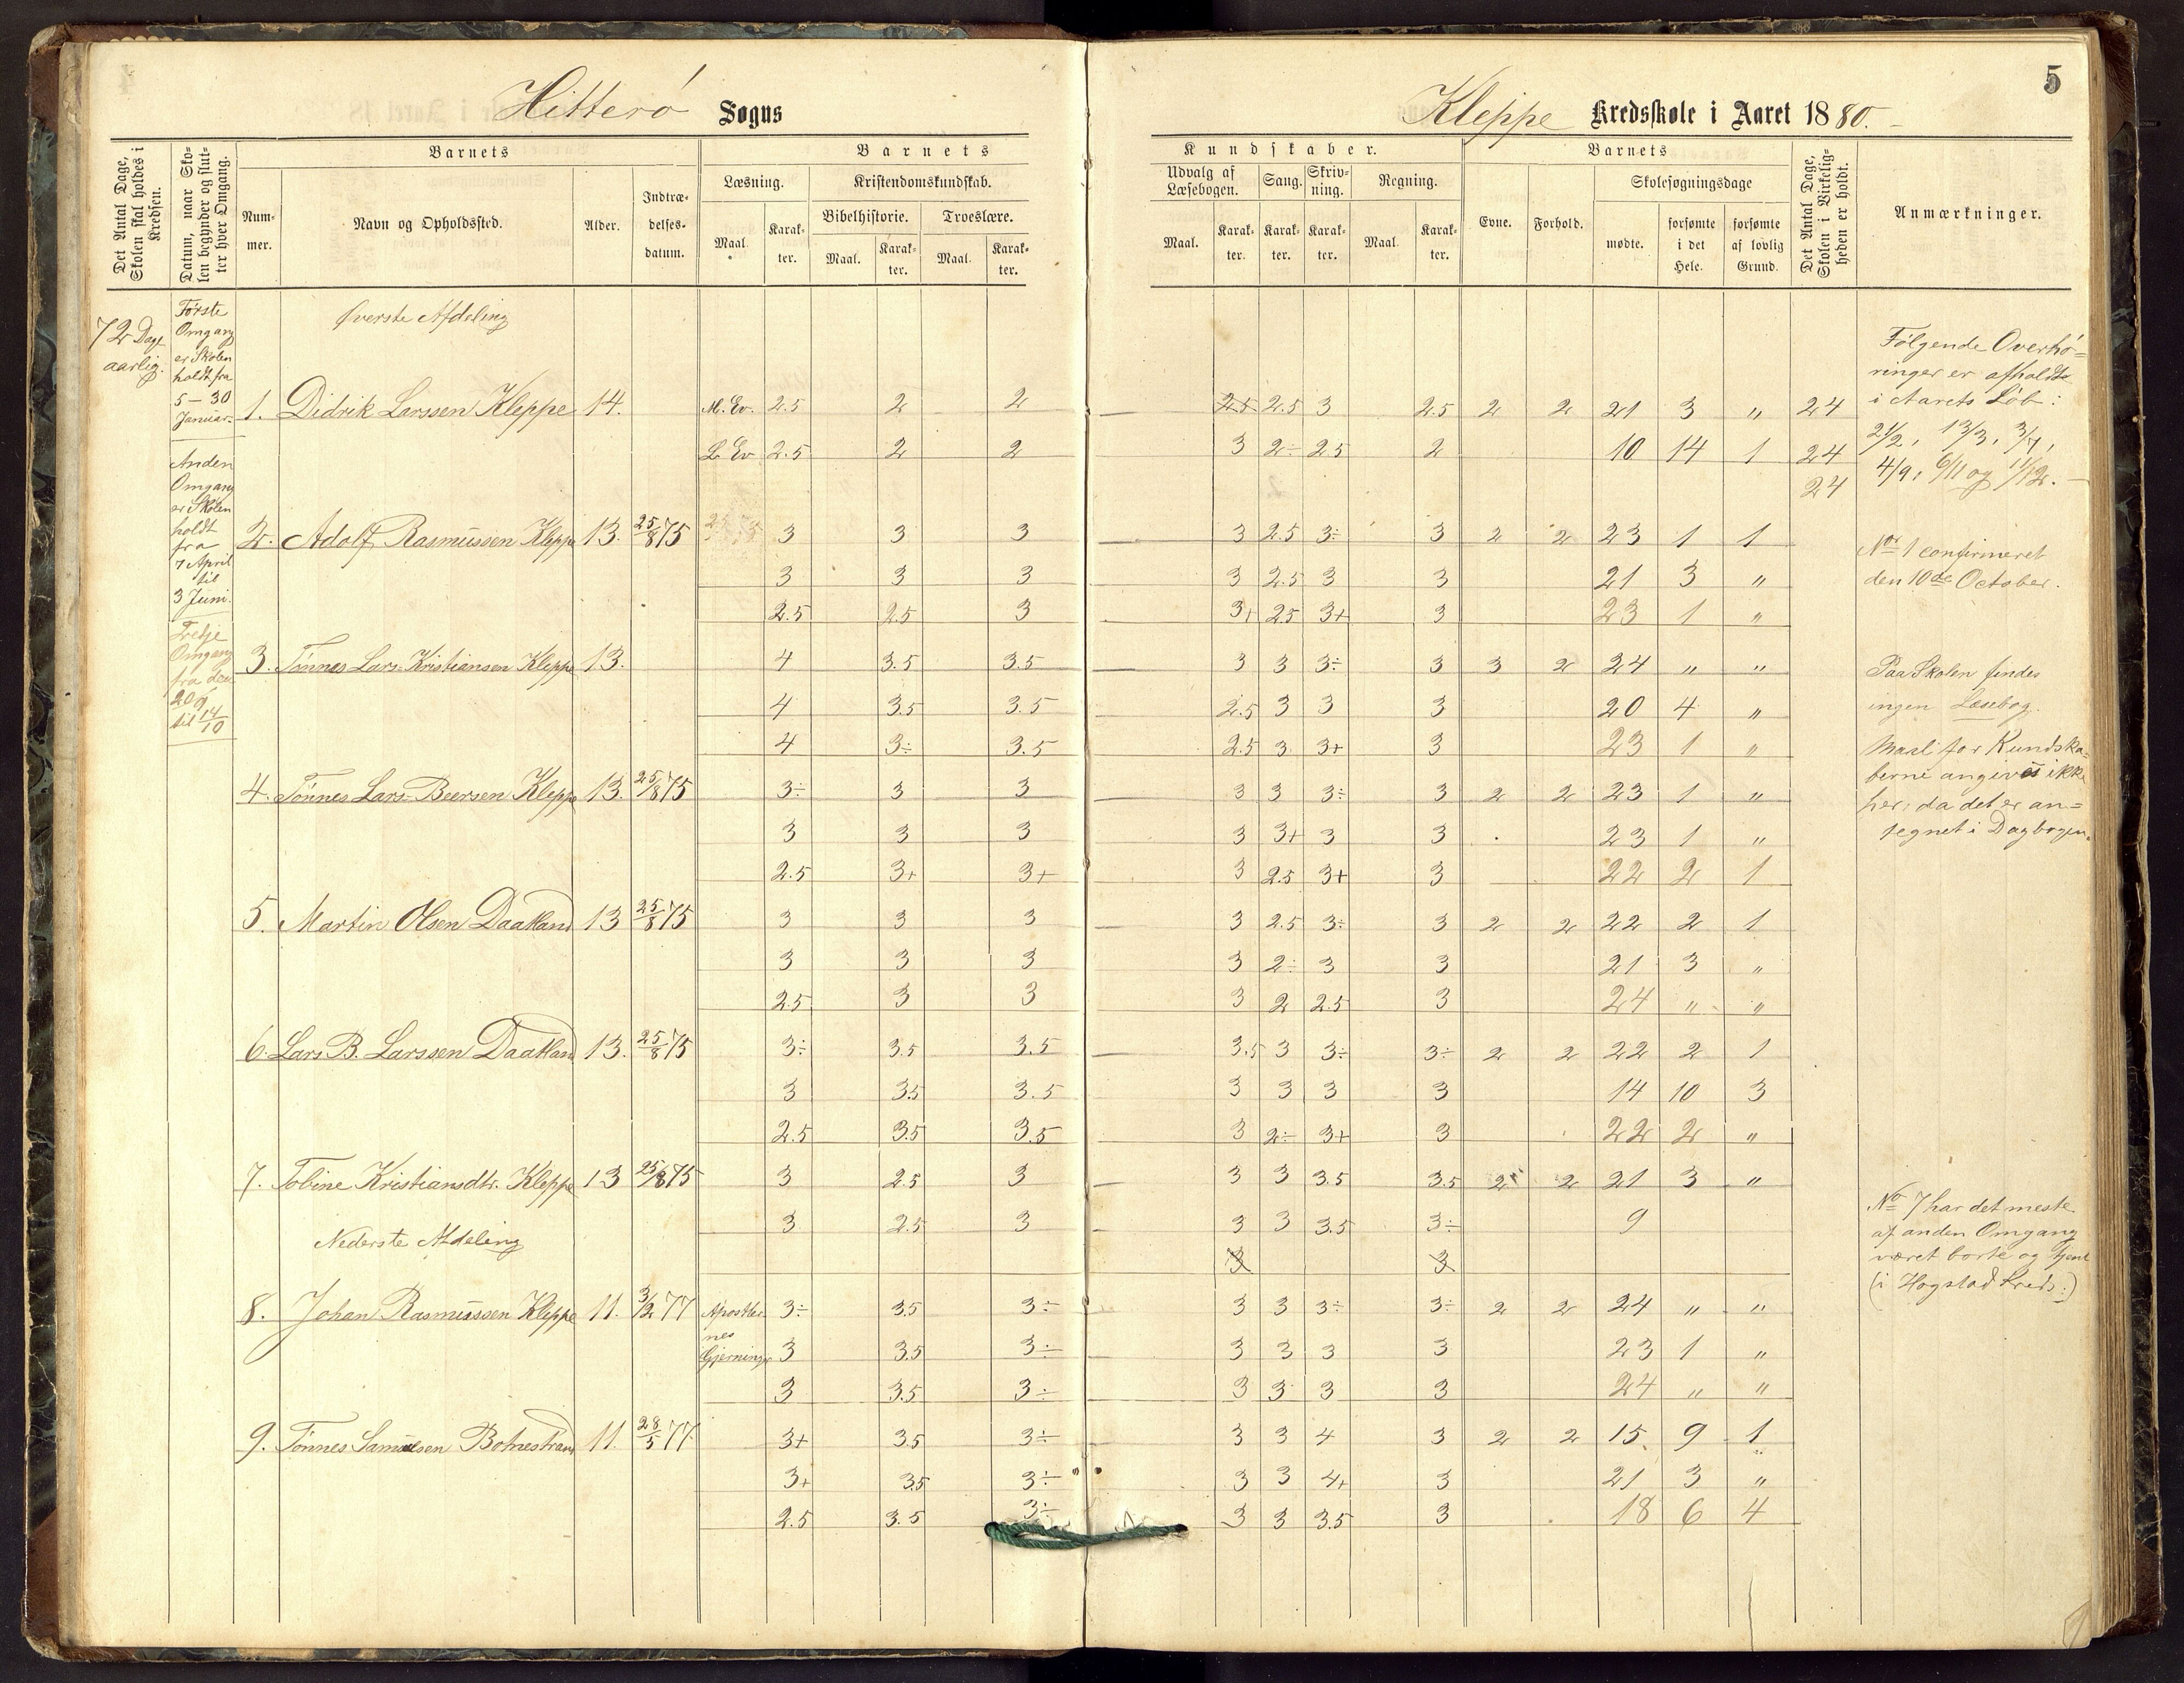 Hitterö Sogns
Kleppe Kredsskole i Aaret 1880.
5
Det Antal Dage, Skolen skal holdes i Kredsen.
Datum, naar Skolen begynder og slutter hver Omgang.
Barnets
Nummer.
Navn og Opholdssted.
Alder.
Indtrædelsesdatum.
Barnets
Kundskaber.
Læsning.
Maal.
Karakter.
Kristendomskundskab.
Bibelhistorie.
Maal.
Karakter.
Troeslære.
Maal.
Karakter.
Udvalg af Læsebogen.
Maal.
Karakter.
Sang.
Karakter.
Skrivning.
Karakter.
Regning.
Maal.
Karakter.
Barnets
Evne.
Forhold.
Skolesøgningsdage
mødte.
forsømte i det Hele.
forsømte af lovlig Grund.
Det Antal Dage, Skolen i Virkeligheden er holdt.
Anmærkninger.
72 Dage
aarlig.
Første
Omgang
er Skolen
holdt fra
5-30
Januar.
Anden
Omgang
er Skolen
holdt
fra
7 April
til
3 Juni.
Tredje
Omgang
fra den
20/9
til 14/10
Øverste Afdeling
1. Didrik Larssen Kleppe 14. M. Ev. 2.5 2 2 2.5 2.5 3 2.5 2 2 21 3 " 24
L. Ev 2.5 2 2 3 2÷ 2.5 2 10 14 1 24
24
2. Adolf Rasmussen Kleppe 13. 25/8 75 3 3 3 3 2.5 3÷ 3 2 2 23 1 1
3 3 3 3 2.5 3 3 21 3 "
2.5 2.5 3 3+ 2.5 3+ 3 23 1 "
3. Tønnes Lars Kristiansen Kleppe 13. 4 3.5 3.5 3 3 3÷ 3 3 2 24 " "
4 3.5 3.5 2.5 3 3 3 20 4 "
4 3÷ 3.5 2.5 3 3+ 3 23 1 "
4. Tønnes Lars Beersen Kleppe 13. 25/8 75 3÷ 3 3 3 3 3÷ 3 2 2 23 1 "
3 3 3 3 3+ 3 3 23 1 "
2.5 3+ 3+ 3 2.5 3+ 3 22 2 1
5. Martin Olsen Daatland 13 25/8 75 3 3 3 3 2.5 3÷ 3 2 2 22 2 1
3 3 3 3 2÷ 3 3 21 3 "
2.5 3 3 3 2 2.5 3 24 " "
6. Lars B. Larssen Daatland 13. 25/8 75 3÷ 3.5 3.5 3.5 3 3÷ 3÷ 2 2 22 2 1
3 3.5 3.5 3 3 3 3 14 10 3
2.5 3.5 3.5 3 2÷ 3+ 3 22 2 "
7. Tobine Kristiansdtr. Kleppe 13 25/8 75 3 2.5 3 3 3 3.5 3.5 2 2 21 3 "
3 2.5 3 3 3 3.5 3÷ 9
3 3
Nederste Afdeling
8. Johan Rasmussen Kleppe 11. 3/2 77 Apostlernes 3÷ 3.5 3÷ 3 3 3÷ 3÷ 2 2 24 " "
Gjerninger 3 3.5 3÷ 3 3 3 3 23 1 "
3 3.5 3÷ 3 3 3 3 24 " "
9. Tønnes Samuelsen Botnestrand 11. 28/5 77 3+ 3.5 3÷ 3 3 4 3 2 2 15 9 1
3+ 3.5 3÷ 3 3 4+ 3 21 3 "
2.5 3.5 3÷ 3 3 3.5 3 18 6 4
Følgende Overhø=
ringer er afholdte
i Aarets Løb:
21/2, 13/3, 3/7,
4/9, 6/11 og 11/12.
No 1 confirmeret
den 10de October.
Paa Skolen findes
ingen Læsebog.
Maal for Kundska=
berne angives ikke
her, da det er an=
tegnet i Dagbogen.
No 7 har det meste
af anden Omgang
været borte og tjent
(i Hogstad Kreds.)